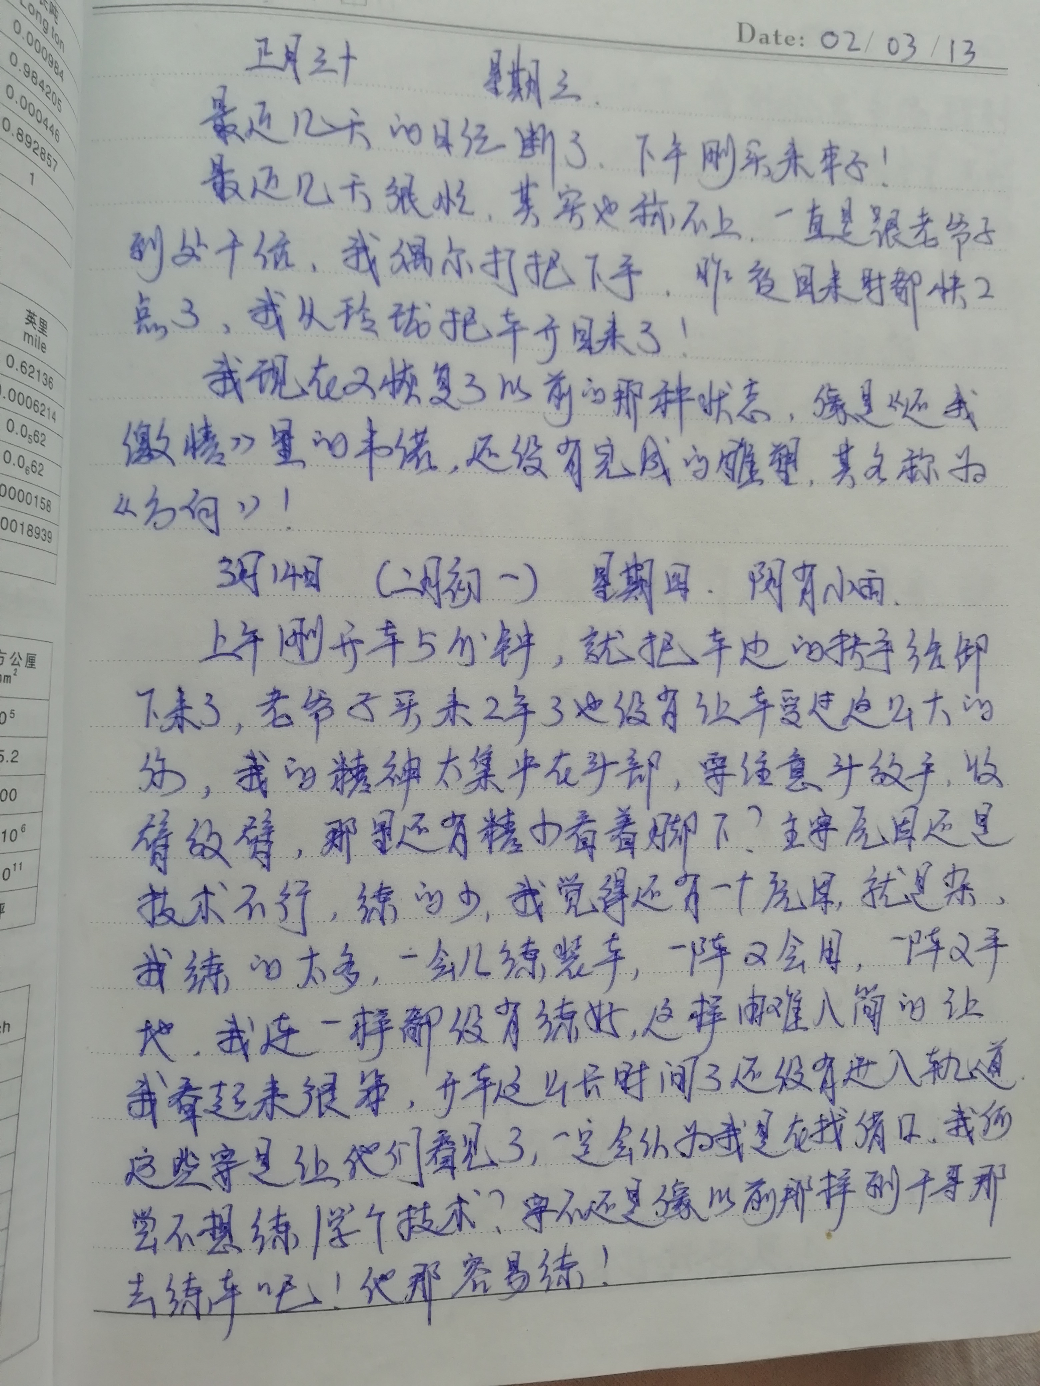 长吨
Long ton
0.000984
0.984205
0.000446
0.892857
1
英里
mile
0.62136
0.0006214
0.0₃62
0.0₆62
0000158
0018939
方公厘
mm²
10⁵
5.2
00
10⁶
0¹¹
Date: 02/03/13
正月三十 星期三.
最近几天的日经断了.下午刚买来本子!
最近几天很忙,其实也称不上.一直是跟老爷子
到处干活,我偶尔打把下手,昨夜回来时都快2
点了,我从玲珑把车开回来了!
我现在又恢复了以前的那种状态,像是《还我
激情》里的韦偌,还没有完成的雕塑,其名称为
《为何》!
3月14日 (二月初一) 星期四. 阴有小雨.
上午刚开车5分钟,就把车边的扶手给卸
下来了,老爷子买来2年了也没有让车受过这么大的
伤,我的精神太集中在斗部,要注意斗放平,收
臂放臂,那里还有精力看着脚下?主要原因还是
技术不行,练的少,我觉得还有一个原因,就是杂,
我练的太多,一会儿练装车,一阵又会用,一阵又平
地.我连一样都没有练好,这样由难入简的让
我看起来很笨,开车这么长时间了还没有进入轨道.
这些要是让他们看见了,一定会认为我是在找借口.我何
尝不想练1学个技术?要不还是像以前那样到干哥那
去练车吧!他那容易练!